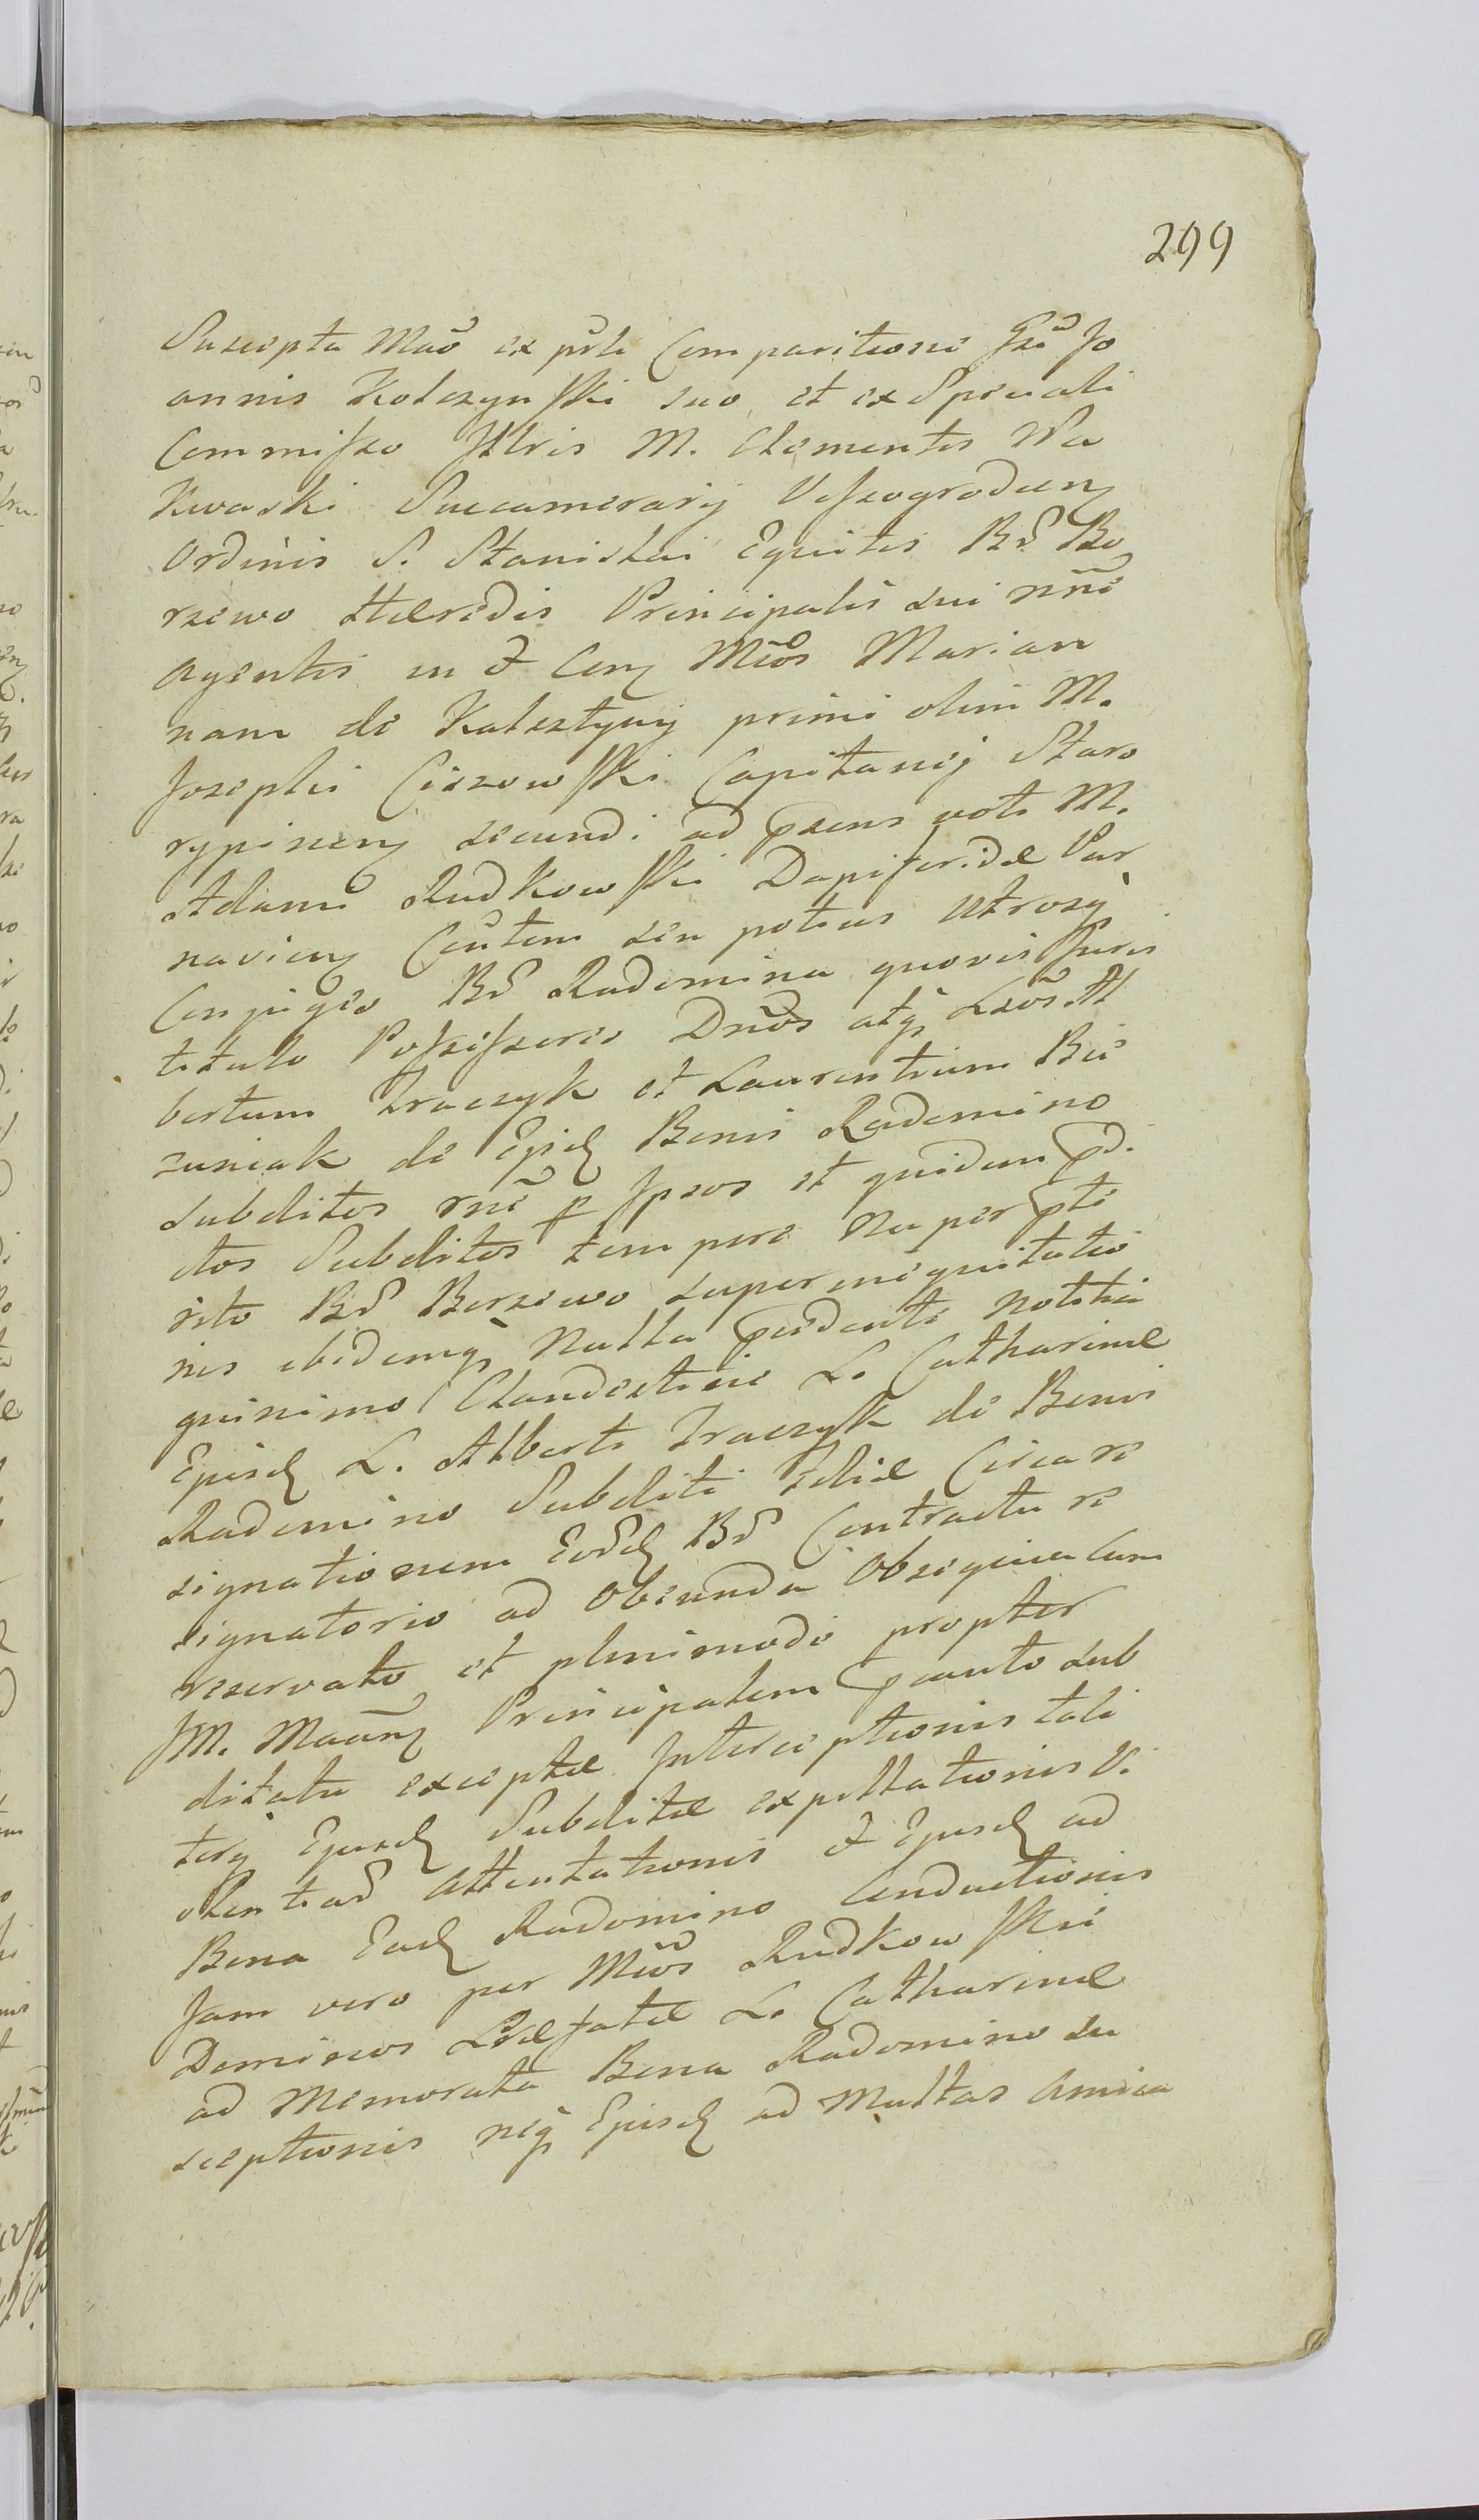 299
Suscepta Mãõ ex pñli Comparitione Gsi Jo
annis Kolczynski suo et ex Speciali
Commisso Illris M. Clementis Na
Kwaski Succamerarij Viszogroden
Ordinis S. Stanislai Equitis Bd Bo
rzewo Haeredis Principalis sui nñe
agentis in & Con Mcos Marian
nam de Kalcztyny primi olim M.
Josephi Ciszowski Capitanej Staro
rypinen secundi ad psens voti M.
Adami Rudkowski Dapiferidae Var
navien Cõtem seu potius utrosq
Conjuges Bd Radomina quovis Juris
titulo Possessores Dños atq Lsos Al
bertum Traczyk et Laurentium Bu
zuniak de Ejsd Bonis Radomino
Subditos rñe p Ipsos et quidem pd.
ctos Subditos tempore nuper pte
rito Bd Borzewo super inequitatio
nis ibidemq Nulla pcedente notitia
quinimo Clandestine L. Catharinae
Ejusd L. Alberti Traczyk de Bonis
Radomino Subditi Filiae Circa re
signationem Eord Bd Contractu re
signatorio ad Obeunda Obsequia Cum
reservato et plenimode propter
JM. Maan Principalem cauto sub
ditatu exceptae Interceptionis tali
terq Ejusd Subditae expillationis V.
olentiad Attentationis & Ejusd ad
Bona Ead Radomino Conductionis
Jam vero per Mcos Rudkowskie
Dominos Praefatae L. Catharinae
ad Memorata Bona Radomino Su
sceptionis neq Ejusd ad Multas Amica